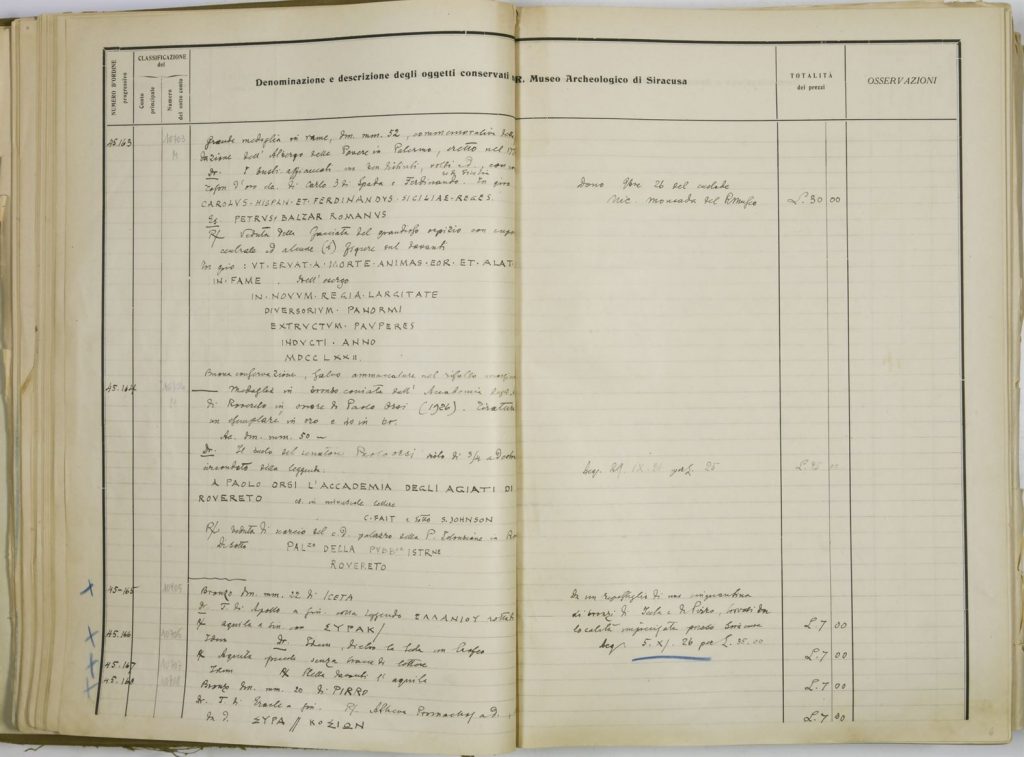 NUMERO D'ORDINE progressivo
CLASSIFICAZIONE del
Conto principale
Numero del sotto conto
Denominazione e descrizione degli oggetti conservati
R. Museo Archeologico di Siracusa
TOTALITÀ dei prezzi
OSSERVAZIONI
45.163
Grande medaglia in rame, dm. mm. 52, commemorativa
dazione dell' Albergo delle Povere in Palermo, eretto nel
Dr. I busti affiancati
Toson d'oro da di Carlo 3 di Spagna e Ferdinando. In giro
CAROLVS·HISPAN·ET·FERDINANDVS·SICILIAE·REGES.
PETRVS BALZAR ROMANVS
R/ Veduta della facciata del grandioso ospizio con
centrale ed alcune (4) figure sul davanti
In giro: VT·ERVAT·A·MORTE·ANIMAS·EOR·ET·ALAT
IN·FAME. Nell' esergo
IN·NOVVM·REGIA·LARGITATE
DIVERSORIVM·PANORMI
EXTRVCTVM·PAVPERES
INDVCTI·ANNO
MDCCLXXII.
Dono 9bre 26 del custode
Nic. Moncada del R. Museo
L. 30 00
Buona conservazione, salvo ammaccature nel
45.164
Medaglia in bronzo coniata dall' Accademia degli
di Rovereto in onore di Paolo Orsi (1926).
un esemplare in oro e 40 in br.
Ae. dm. mm. 50
Dr. Il busto del senatore Paolo Orsi visto di 3/4 a d.
circondato della leggenda:
A PAOLO ORSI L'ACCADEMIA DEGLI AGIATI DI
ROVERETO in minuscole lettere
C. FAIT e sotto S. JOHNSON
R/ Veduta di scorcio del c.d. palazzo della P. Istruzione in
Di sotto PAL.zo DELLA PVBB.ca ISTR.NE
ROVERETO
IX. 26 per L. 25
45-165
Bronzo dm. mm. 22 di ICETA
Dr. T. di Apollo a sin. colla leggenda
R/ aquila a sin. con ΣΥΡΑΚ/
45.166
Idem Dr. Idem, dietro la testa un
R/ Aquila
45.167
Idem R/ Stella davanti l' aquila
45.168
Bronzo dm. mm. 20 di PIRRO
Dr. T. di Eracle a sin. R/ Athena Promachos a d.
ΣΥΡΑ // ΚΟΣΙΩΝ
Da un ripostiglio di una cinquantina
di bronzi di Iceta e di Pirro, trovati in
località imprecisata presso Siracusa
Acq. 5. XI. 26 per L. 35.00
L. 7 00
L. 7 00
L. 7 00
L. 7 00